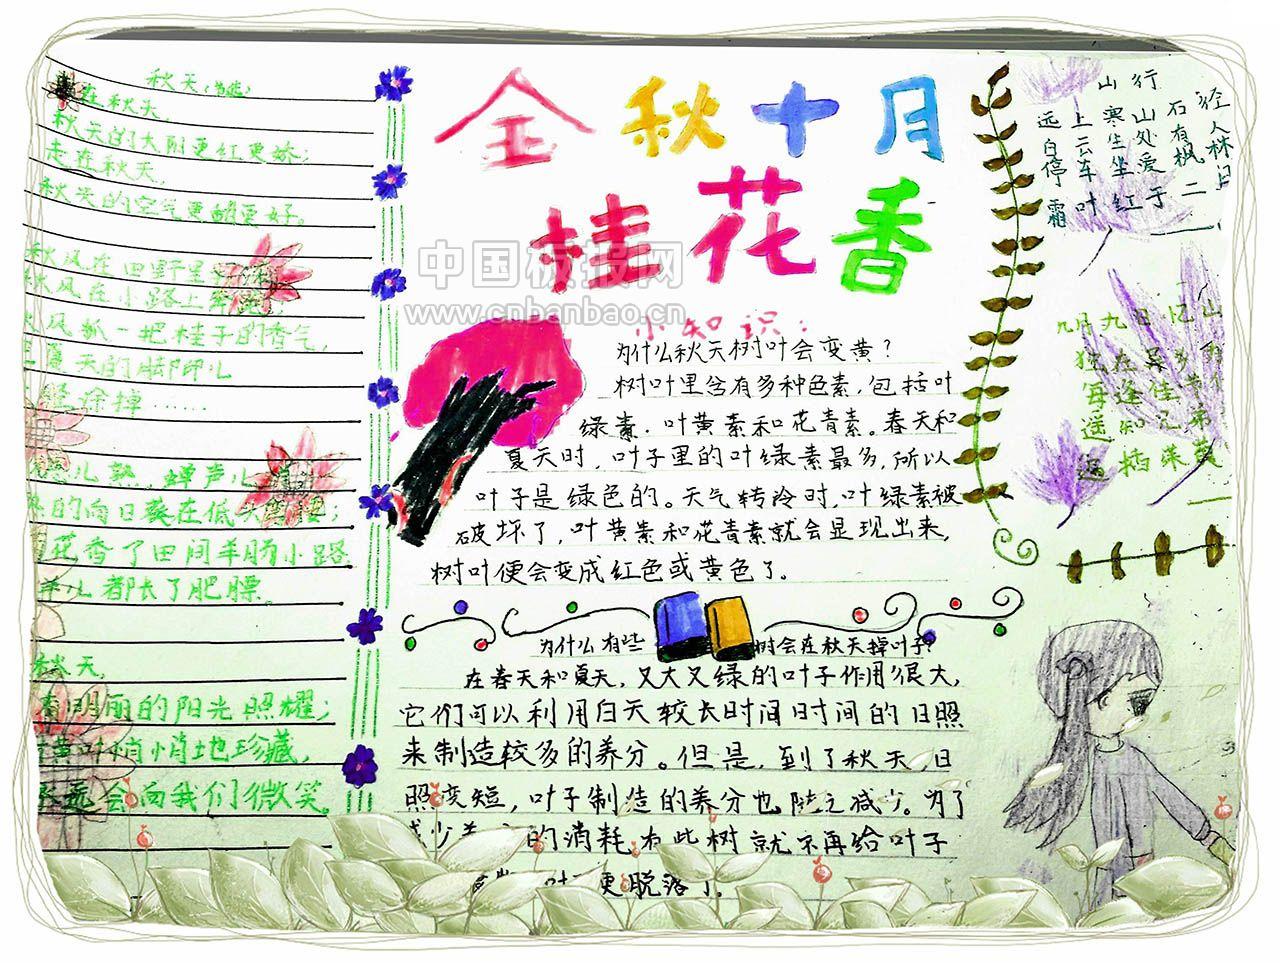 秋天
在秋天,
秋天的太阳更红更娇;
走在秋天,
秋天的空气更甜更好。
秋风在田野里
秋风在小路上奔跑;
风抓一把桂子的香气,
夏天的脚印儿
涂掉……
儿熟,蝉声儿
的向日葵在低头
花香了田间羊肠小路
羊儿都长了肥膘。
秋天,
明丽的阳光照耀;
黄叶悄悄地珍藏,
永远会向我们微笑。
全秋十月
桂花香
中国板报网
www.cnbanbao.cn
小知识:
为什么秋天树叶会变黄?
树叶里含有多种色素,包括叶
绿素、叶黄素和花青素。春天和
夏天时,叶子里的叶绿素最多,所以
叶子是绿色的。天气转冷时,叶绿素被
破坏了,叶黄素和花青素就会显现出来,
树叶便会变成红色或黄色了。
为什么有些 树会在秋天掉叶子?
在春天和夏天,又大又绿的叶子作用很大,
它们可以利用白天较长时间日时间的日照
来制造较多的养分。但是,到了秋天,日
照变短,叶子制造的养分也随之减少。为了
减少养 的消耗有些树就不再给叶子
更脱落了。
山行
远上寒山石径
白云生处有人
停车坐爱枫林
霜叶红于二
九月九日忆山
独在异乡
每逢佳
遥知兄弟
遍插茱萸